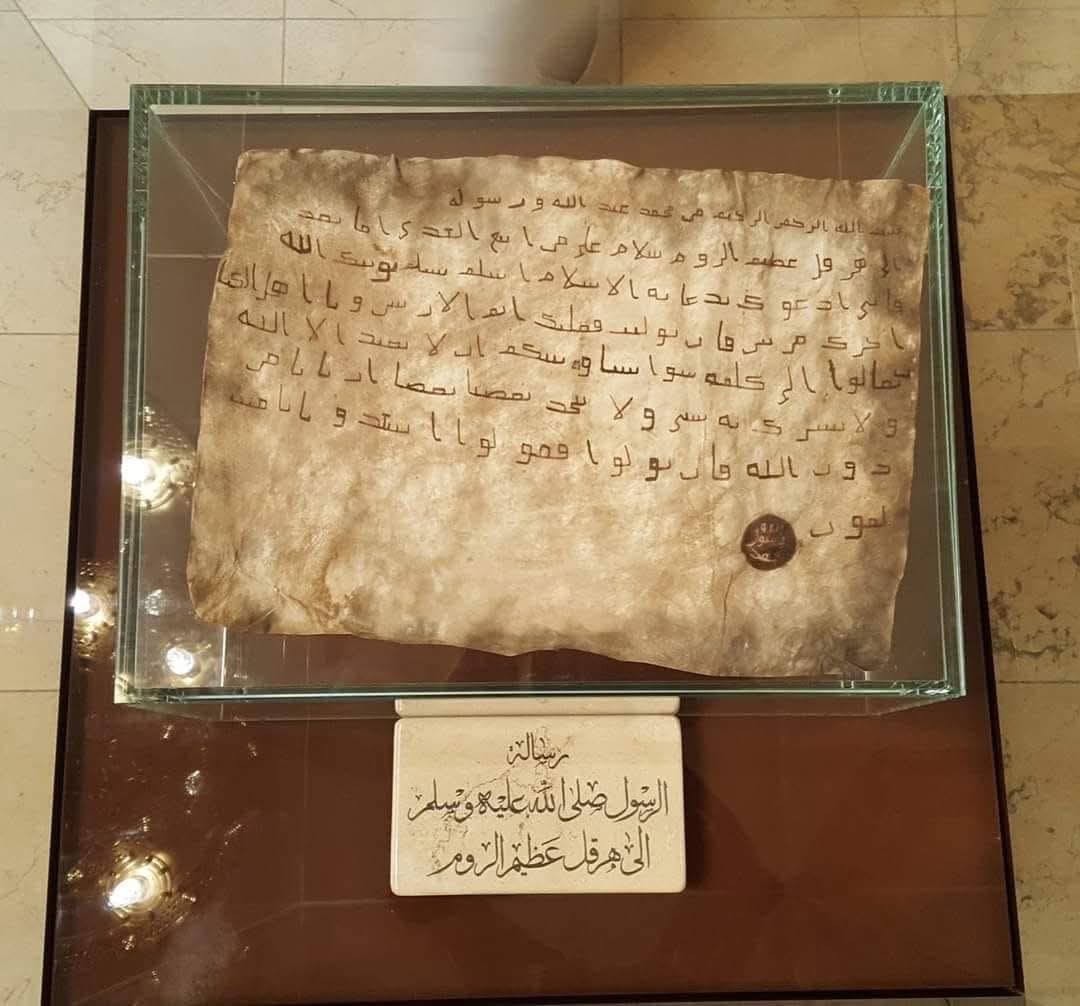 بسم الله الرحمن الرحيم من محمد عبد الله و رسوله
الى هرقل عظيم الروم سلام على من اتبع الهدى اما بعد
فانى ادعوك بدعاية الاسلام اسلم تسلم يوتك الله
اجرك مرتين فان توليت فعليك اثم الاريسين و يا اهل الكتا
ب تعالوا الى كلمة سوا بيننا و بينكم ان لا نعبد الا الله
و لا نشرك به شيا و لا يتخذ بعضنا بعضا اربابا من
دون الله فان تولوا فقولوا اشهدوا بانا مس
لمون
الله
رسول
محمد
رسالة
الرسول صلى الله عليه وسلم
الى هرقل عظيم الروم